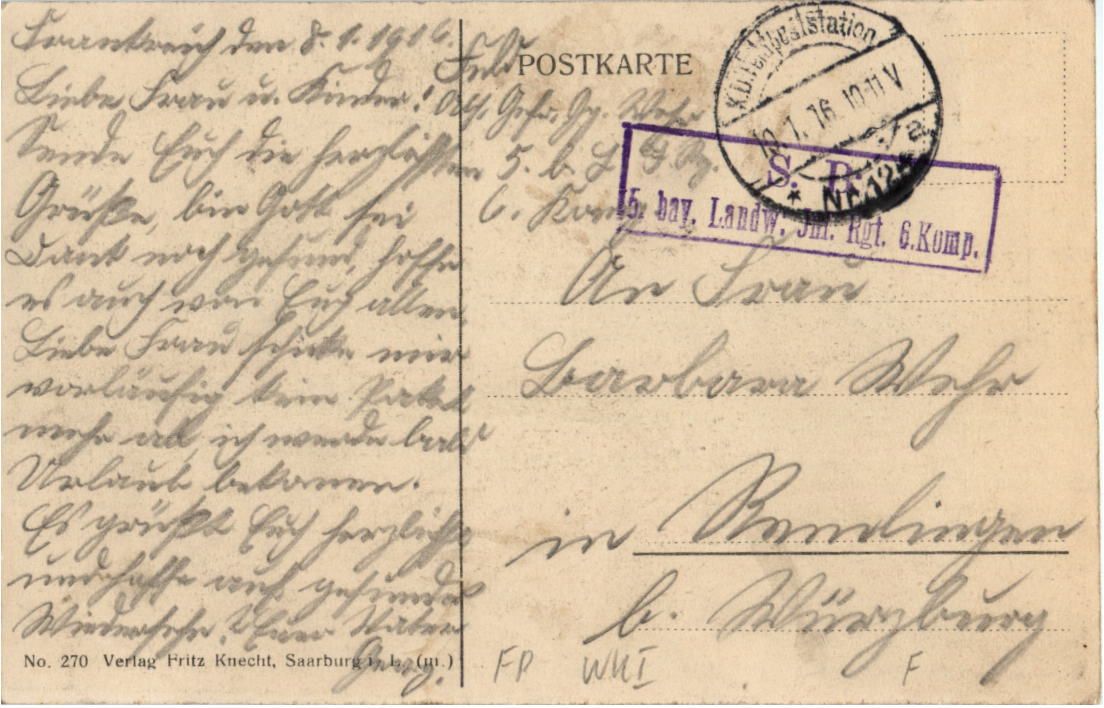 Frankreich den 8.1.1916.
Liebe Frau u. Kinder!
Sende Euch die herzlichsten
Grüße, bin Gott sei
Dank noch gesund, hoffe
es auch von Euch allen.
Liebe Frau schicke mir
vorläufig kein Paket
mehr ab, ich werde bald
Urlaub bekomen.
Es grüßt Euch herzlichst
und hoffe auf gesundes
Wiedersehn. Euer Vater
Georg.
No. 270 Verlag Fritz Knecht, Saarburg i. L. (m.)
POSTKARTE
Feld
Abs. Gefr. Gg. Wehr
5. b. L. J. Rg.
6. Komp.
K.D. Feldpoststation
1. 16. 10-11 V
a
* Nr. 12 *
S. B.
5. bay. Landw. Inf. Rgt. 6.Komp.
An Frau
Barbara Wehr
in Remlingen
b. Würzburg
FP WKI F